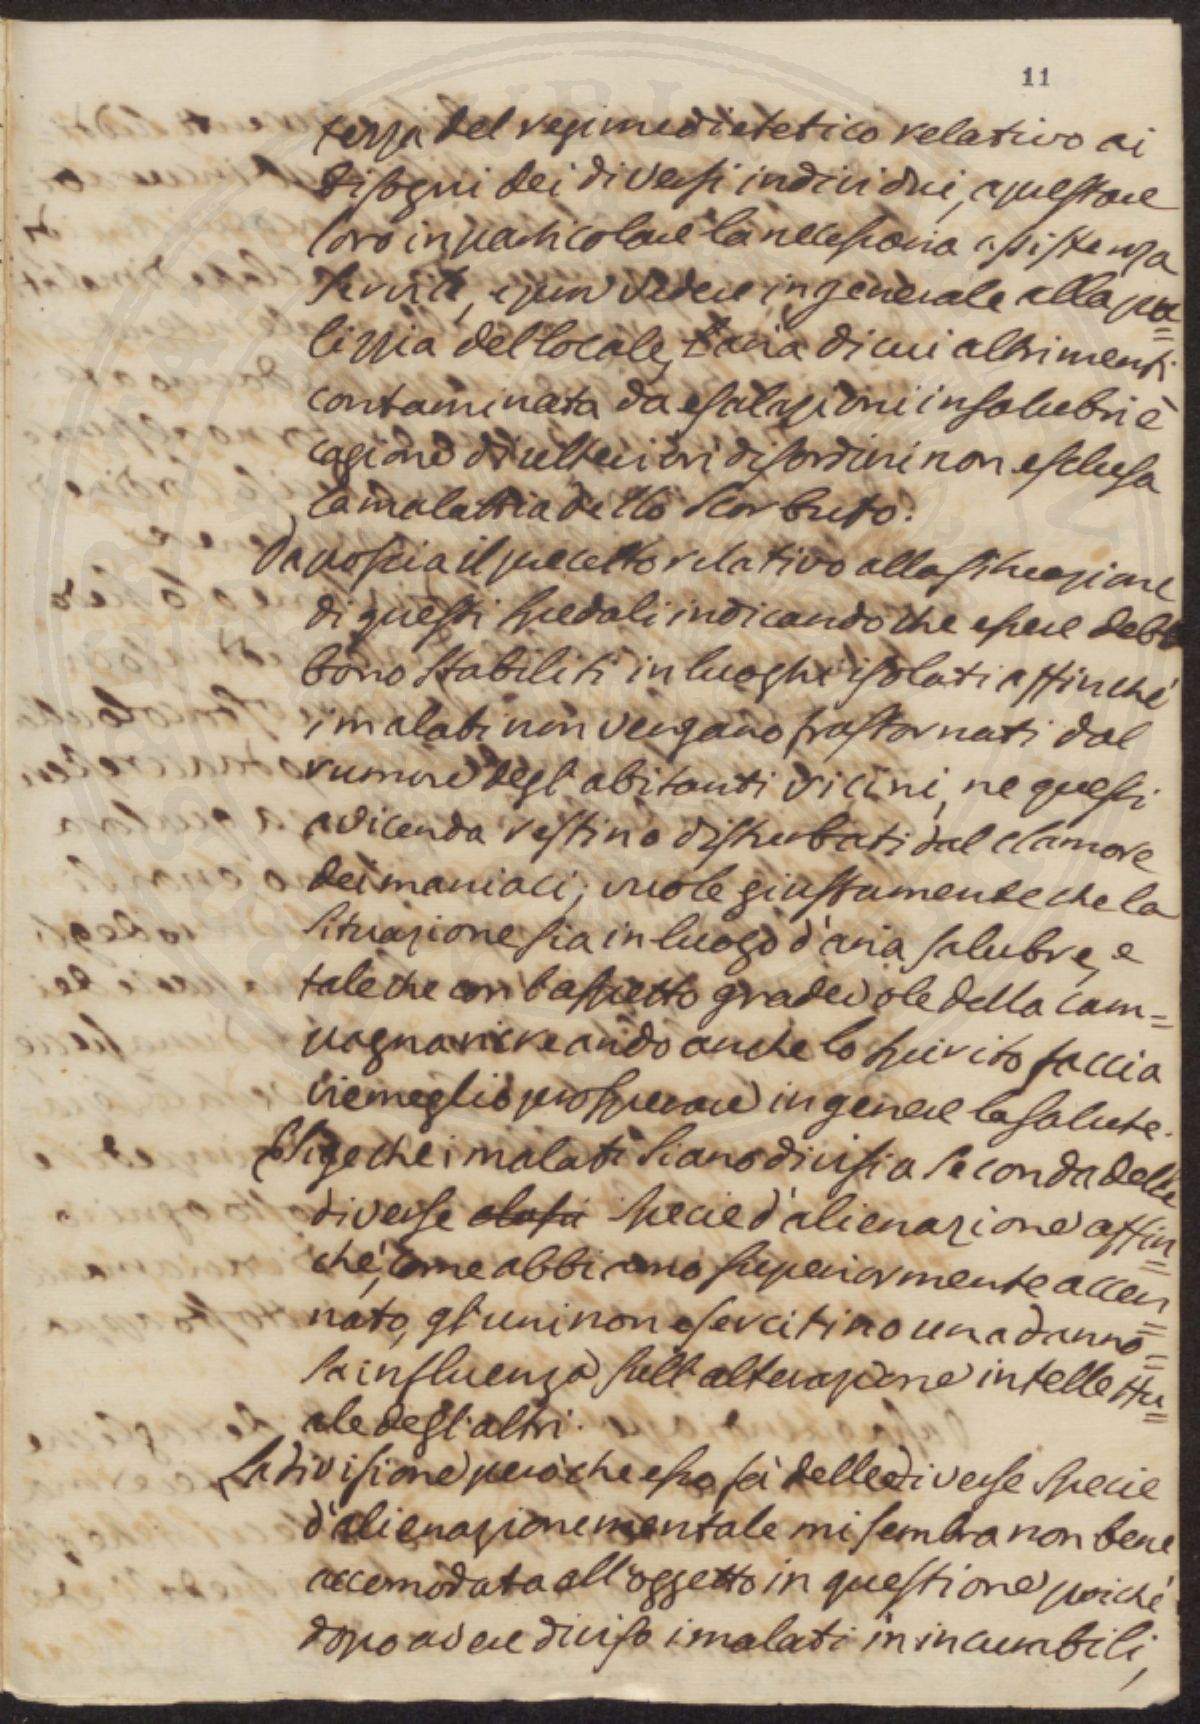 11
tezza del regime dietetico relativo ai
bisogni dei diversi individui, a prestare
loro in particolare la necessaria assistenza
servile, e pur vedere in generale alla pu=
lizzia del locale, l'aria di cui altrimenti
contaminata da esalazioni insalubri è
cagione di ulteriori disordini non esclusa
la malattia dello Scorbuto.
Da poscia il precetto relativo alla situazione
di questi Spedali indicando che essere deb
bono stabiliti in luoghi isolati affinchè
i malati non vengano frastornati dal
rumore degl'abitanti vicini, ne questi
a vicenda restino disturbati dal clamore
dei maniaci; vuole giustamente che la
Situazione sia in luogo d'aria salubre, e
tale che con l'aspetto gradevole della cam=
pagna ricreando anche lo spirito faccia
viemeglio prosperare in genere la salute.
Esige che i malati siano divisi a seconda delle
diverse classi specie d'alienazione affin=
chè, come abbiamo superiormente accen=
nato, gl'uni non esercitino una danno=
sa influenza sull'alterazione intellettu=
ale degl'altri.
La divisione però che esso fà delle diverse specie
d'alienazione mentale mi sembra non bene
accomodata all'oggetto in questione, poichè
dopo avere diviso i malati in incurabili,